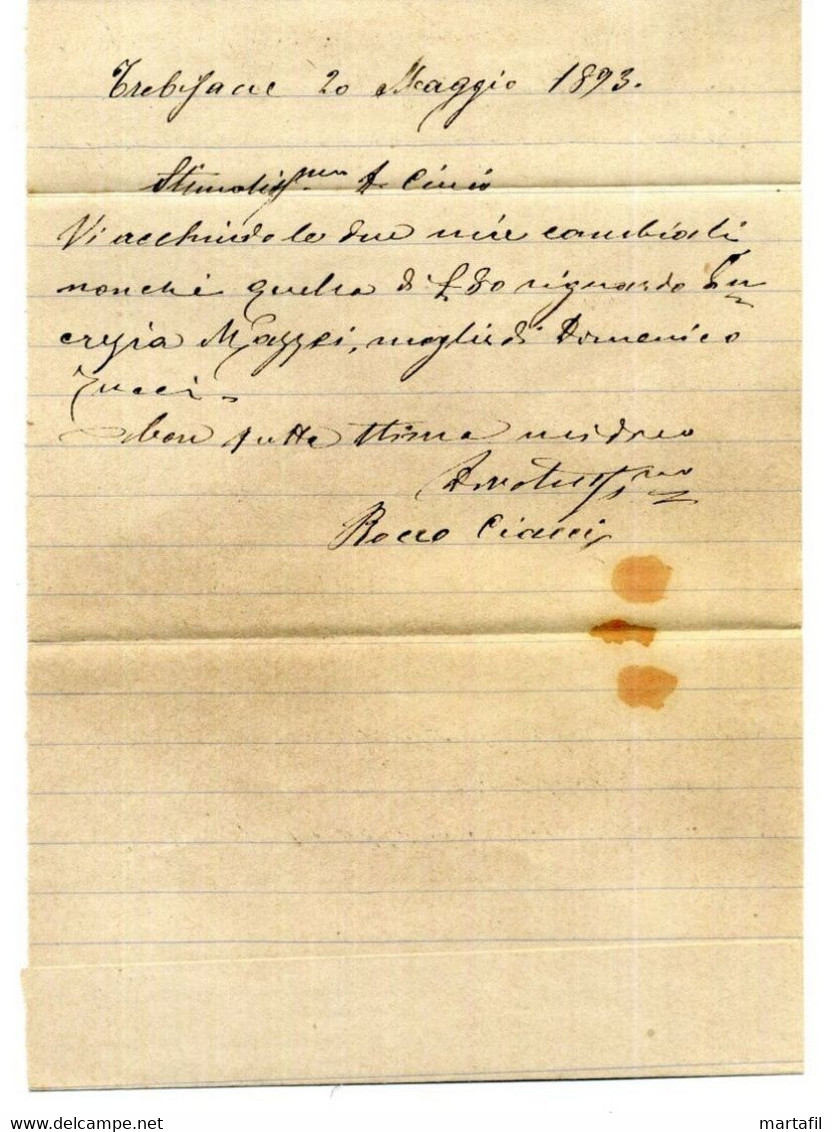 Trebisacce 20 Maggio 1893.
Stimatissmo D. Ciccio
Vi acchiudo le due mie cambiali
nonchè quella di £ 80 riguardo Lu=
crezia Mazzei, moglie di Domenico
Tucci.
Con tutta stima mi dico
Devotissmo
Rocco Ciacci
DELCAMPE.NET
martafil